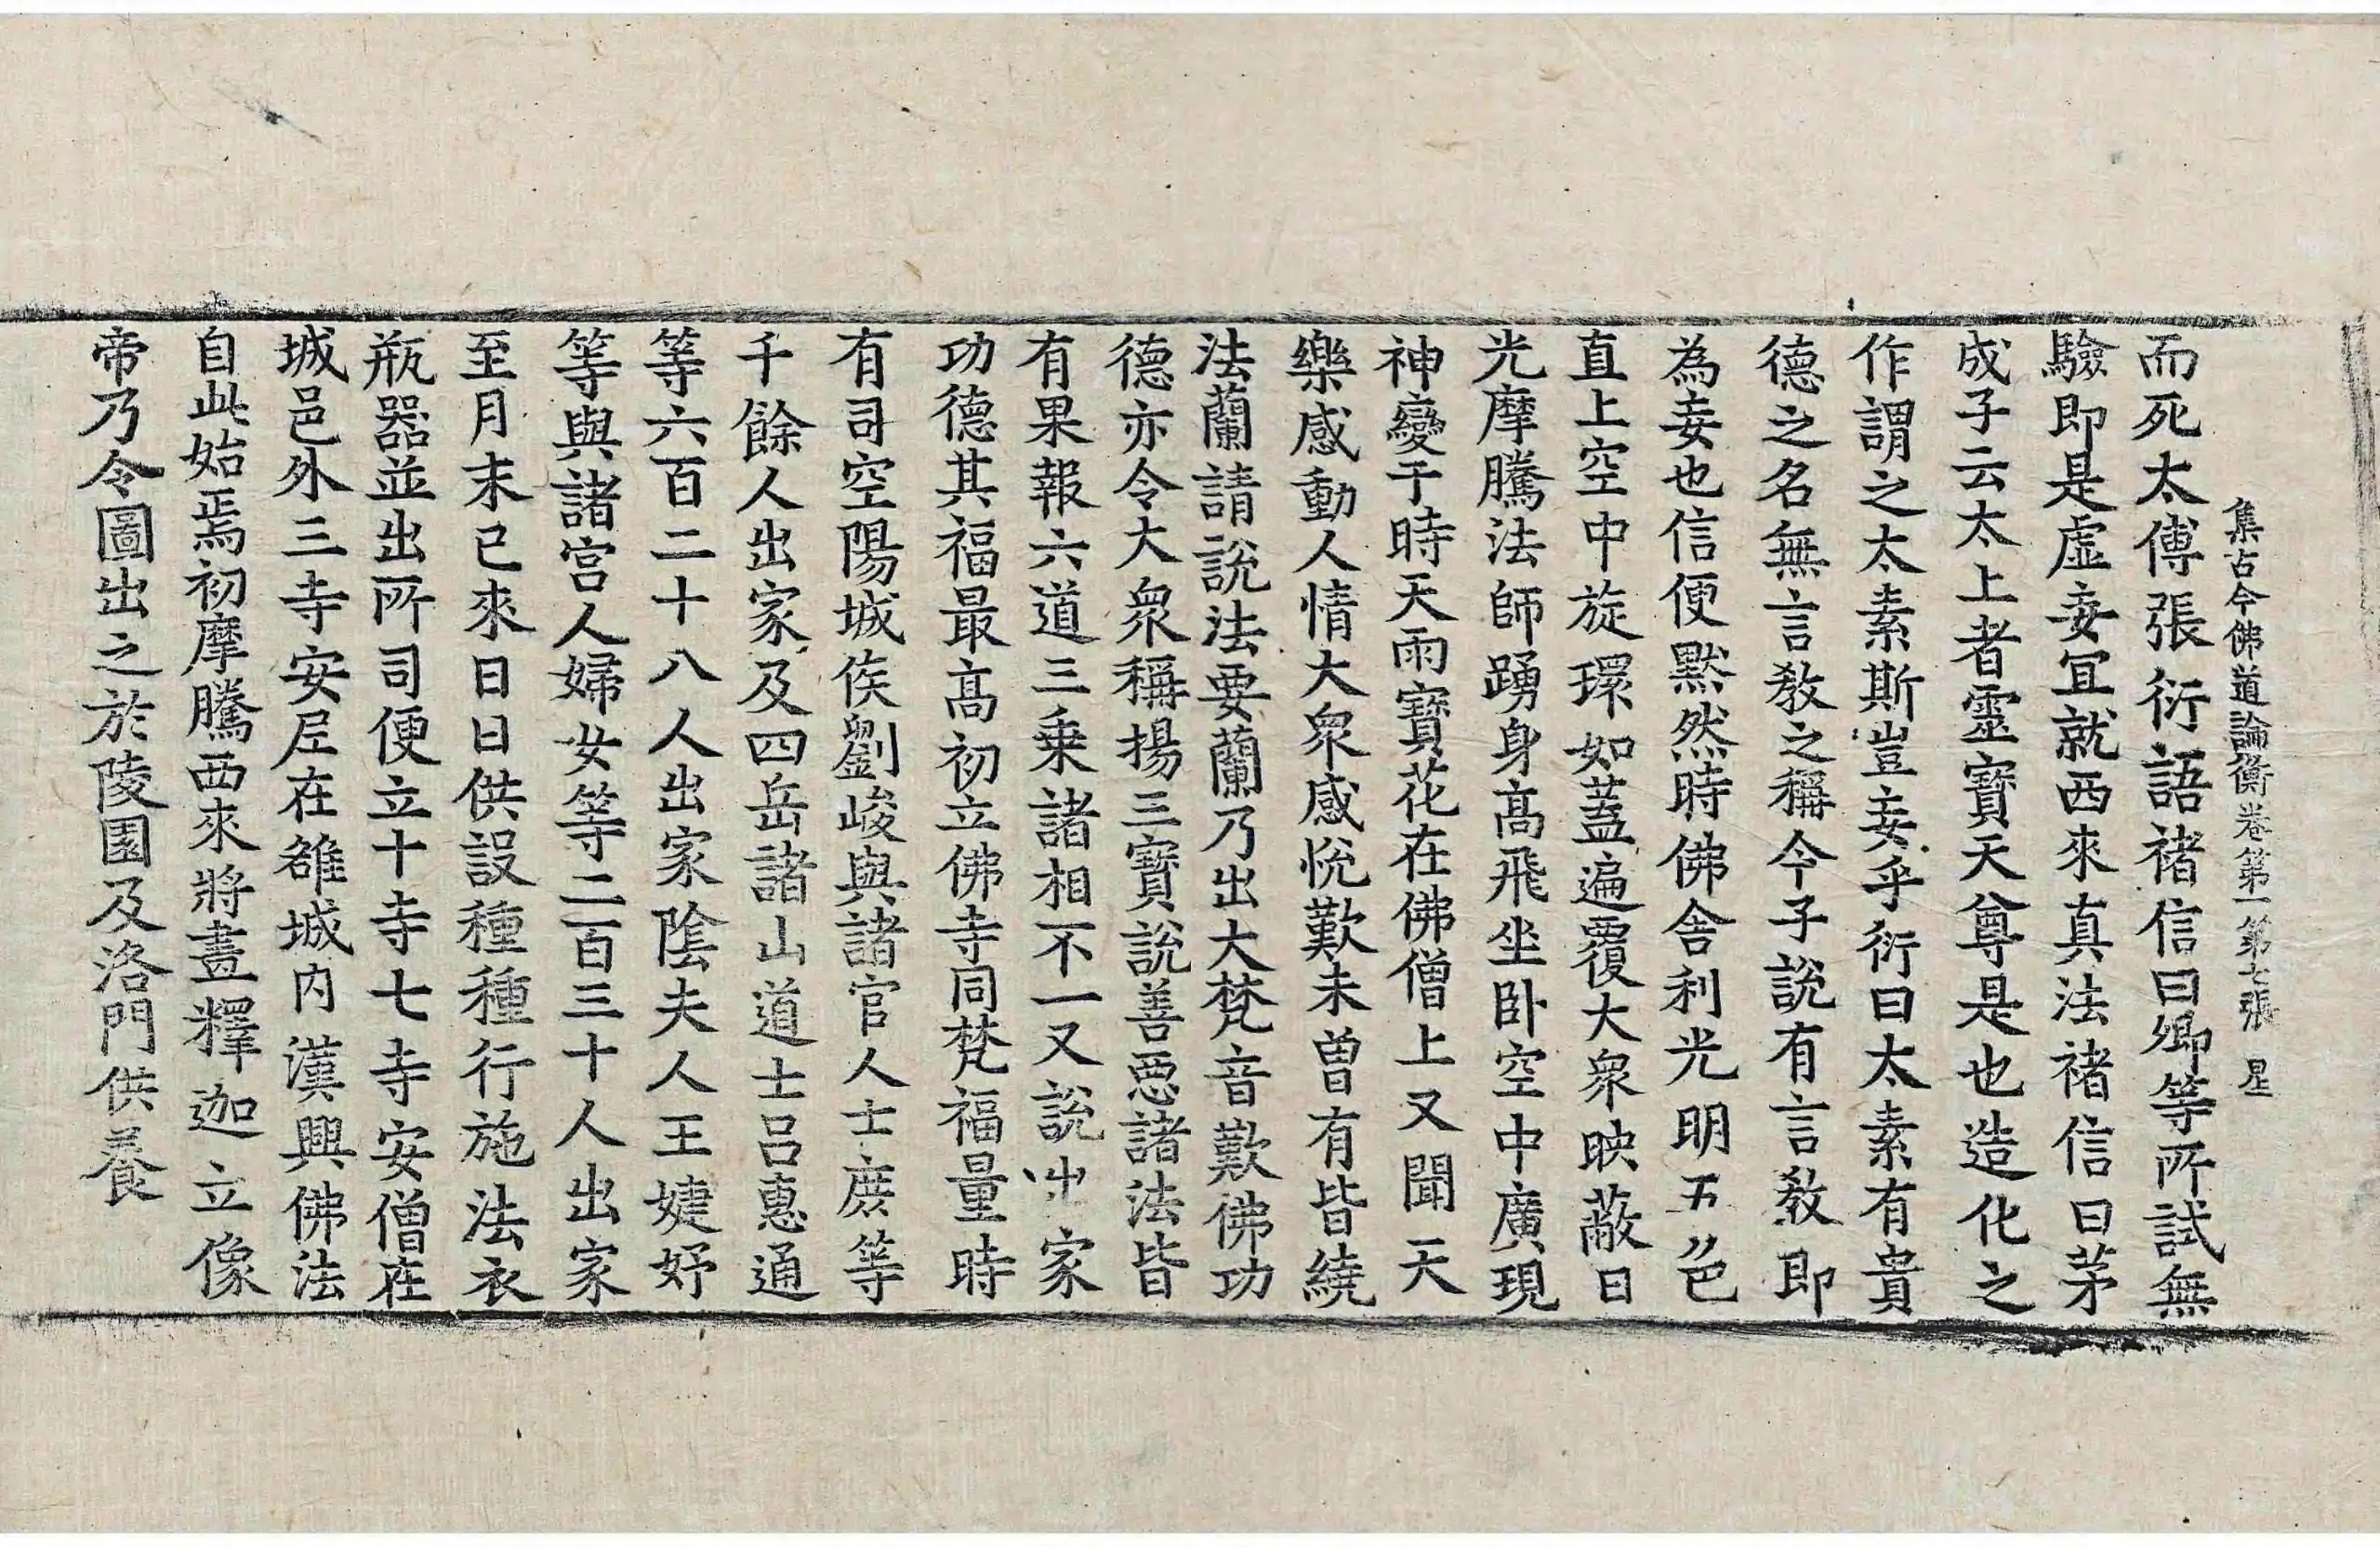 集古今佛道論衡卷第一第七張 星
而死太傅張衍語褚信曰卿等所試無
驗即是虛妄宜就西來真法褚信曰茅
成子云太上者靈寶天尊是也造化之
作謂之太素斯豈妄乎衍曰太素有貴
德之名無言教之稱今子說有言教即
為妄也信便默然時佛舍利光明五色
直上空中旋環如蓋遍覆大衆映蔽日
光摩騰法師踊身高飛坐臥空中廣現
神變于時天雨寶花在佛僧上又聞天
樂感動人情大衆感悅歎未曾有皆繞
法蘭請說法要蘭乃出大梵音歎佛功
德亦令大衆稱揚三寶說善惡諸法皆
有果報六道三乗諸相不一又說出家
功德其福最高初立佛寺同梵福量時
有司空陽城侯劉峻與諸官人士庶等
千餘人出家及四岳諸山道士呂惠通
等六百二十八人出家陰夫人王婕妤
等與諸宮人婦女等二百三十人出家
至月末已來日日供設種種行施法衣
瓶器並出所司便立十寺七寺安僧在
城邑外三寺安尼在雒城內漢興佛法
自此始焉初摩騰西來將畫釋迦立像
帝乃令圖出之於陵園及洛門供養